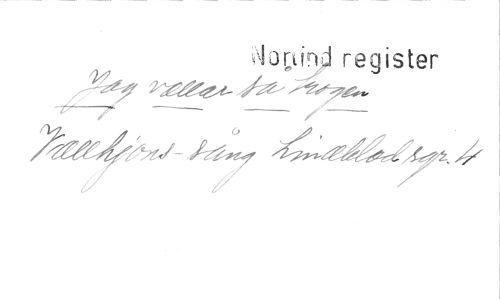 Norind register
Jag vallar så trogen
Vallhjons-sång Lindblad sgr. 4